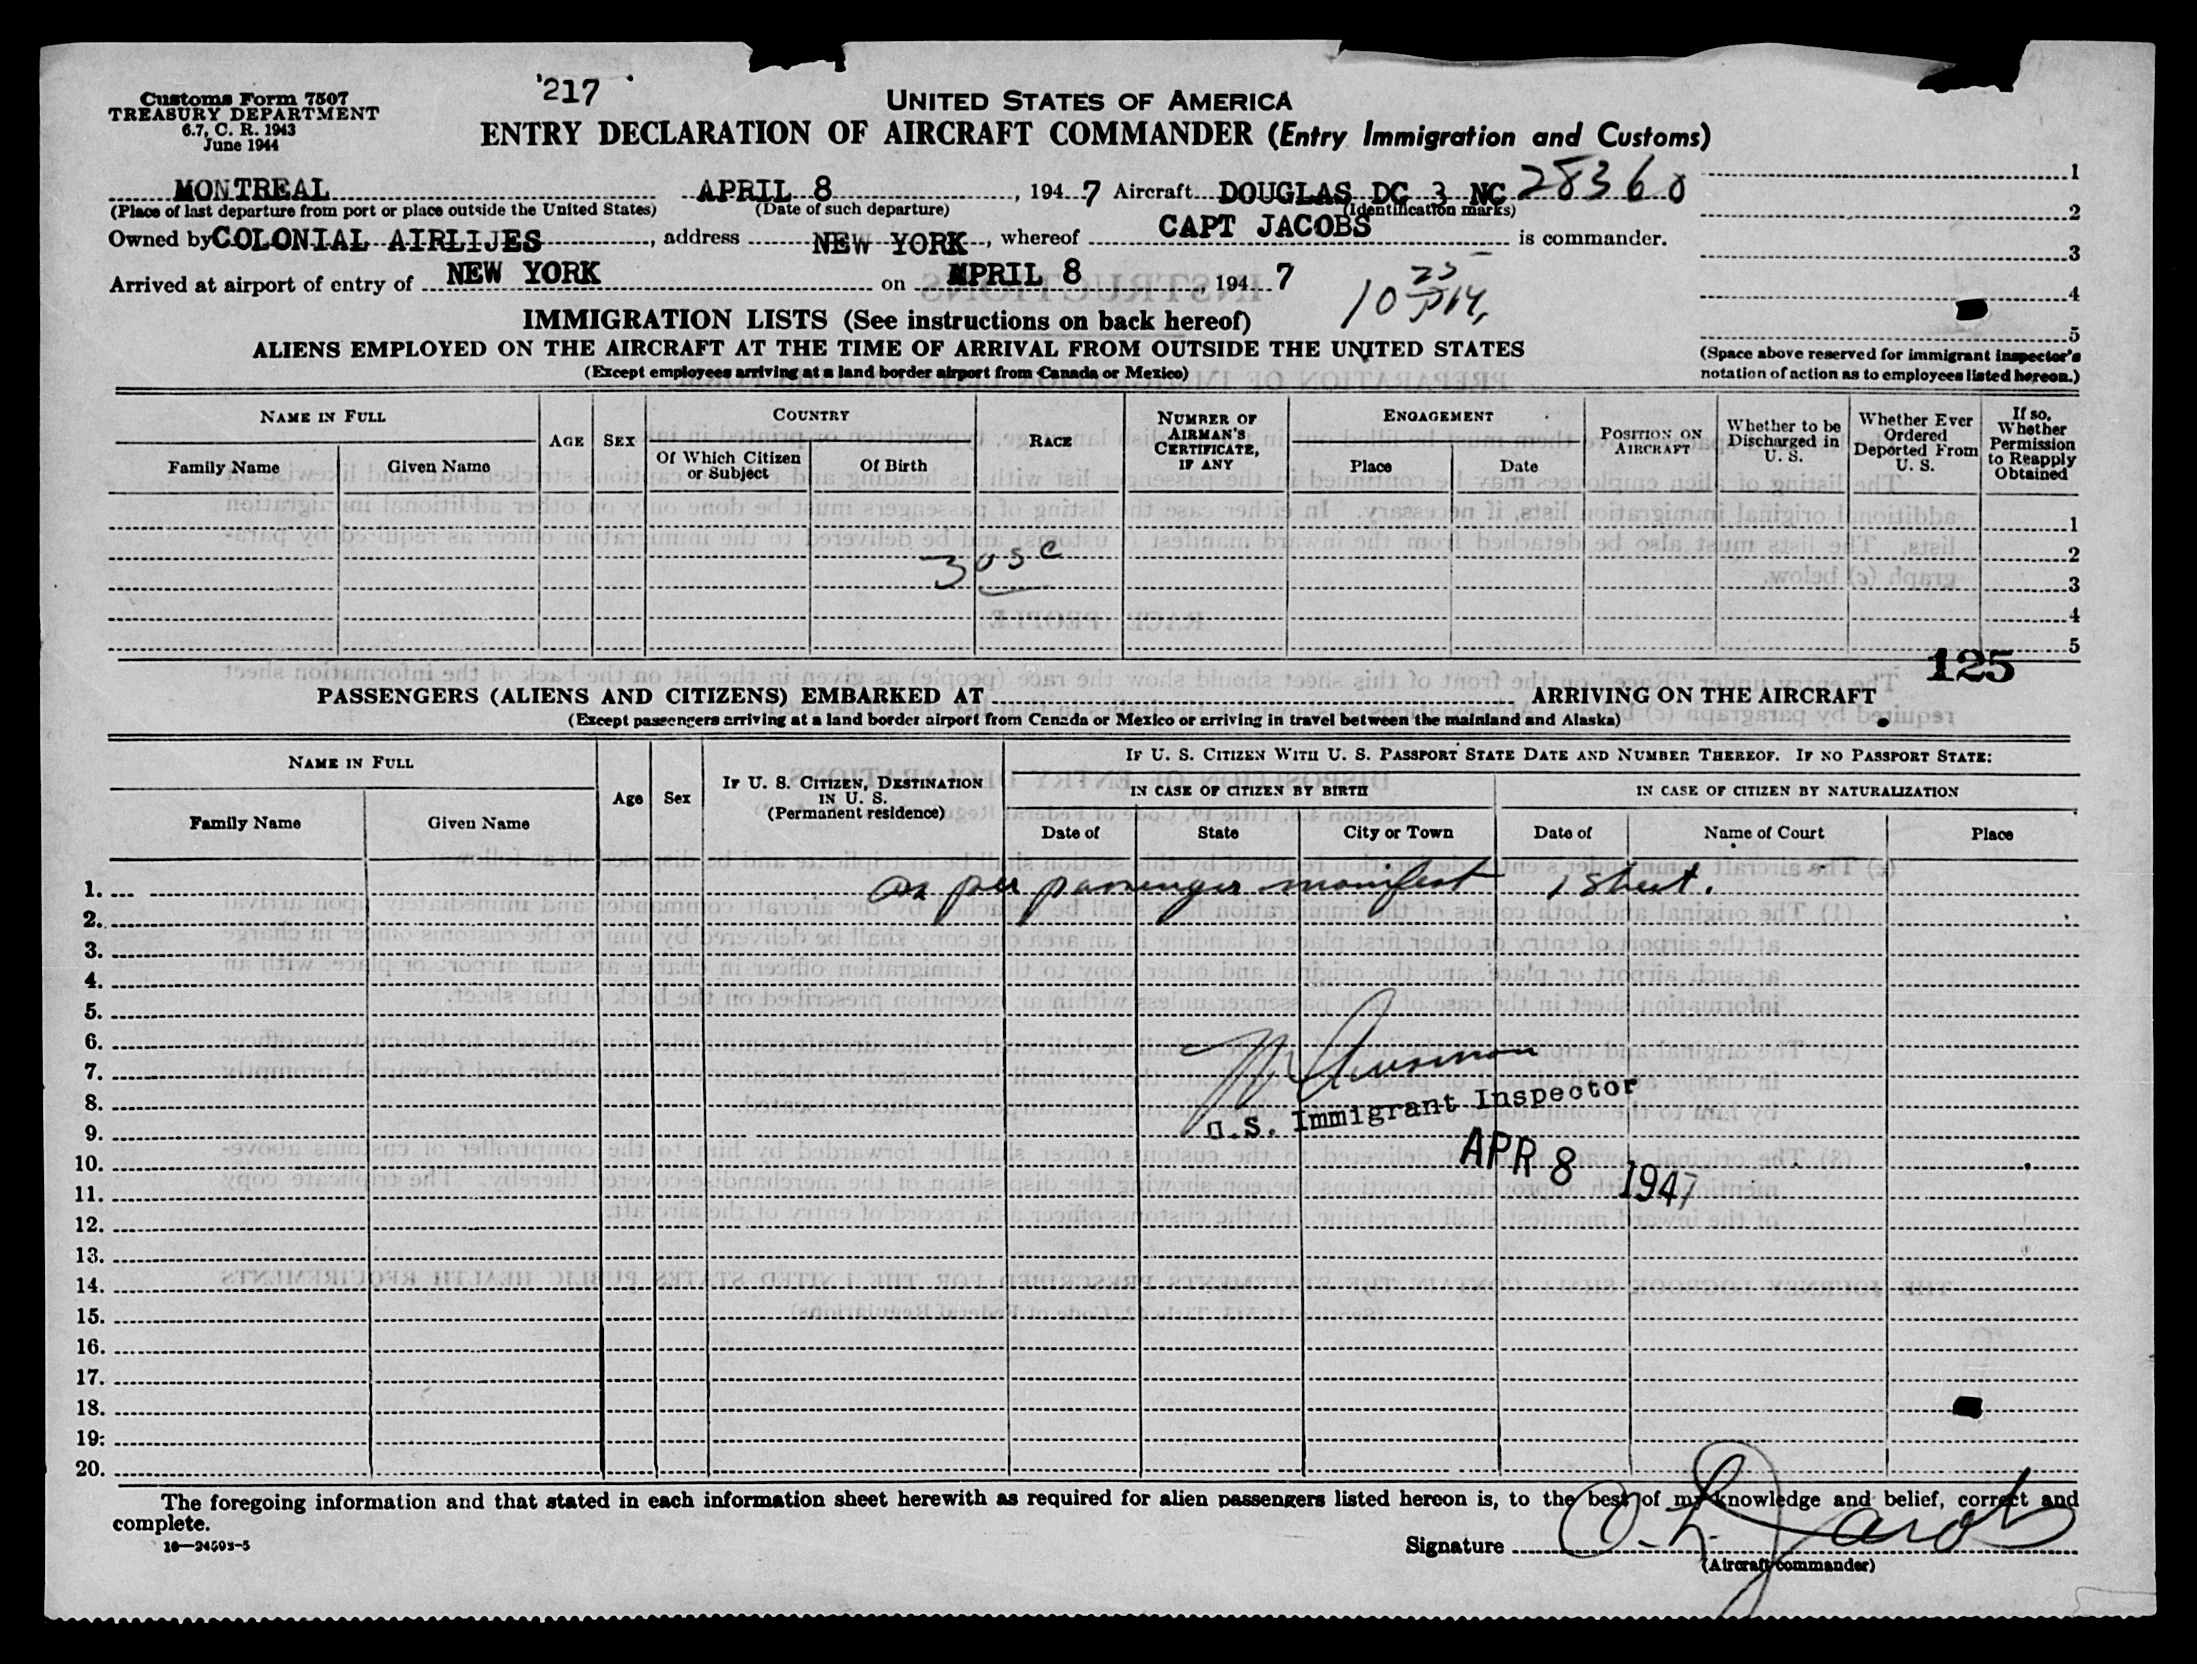 Customs Form 7507
TREASURY DEPARTMENT
6.7, C. R. 1943
June 1944
'217
UNITED STATES OF AMERICA
ENTRY DECLARATION OF AIRCRAFT COMMANDER (Entry Immigration and Customs)
MONTREAL APRIL 8, 1947 Aircraft DOUGLAS DC 3 NC 28360
(Place of last departure from port or place outside the United States) (Date of such departure) (Identification marks)
Owned by COLONIAL AIRLIJES, address NEW YORK, whereof CAPT JACOBS is commander.
Arrived at airport of entry of NEW YORK on APRIL 8, 1947
10 25
1
2
3
4
5
(Space above reserved for immigrant inspector's
notation of action as to employees listed hereon.)
IMMIGRATION LISTS (See instructions on back hereof)
ALIENS EMPLOYED ON THE AIRCRAFT AT THE TIME OF ARRIVAL FROM OUTSIDE THE UNITED STATES
(Except employees arriving at a land border airport from Canada or Mexico)
NAME IN FULL
Family Name
Given Name
AGE
SEX
COUNTRY
Of Which Citizen
or Subject
Of Birth
RACE
NUMBER OF
AIRMAN'S
CERTIFICATE,
IF ANY
ENGAGEMENT
Place
Date
POSITION ON
AIRCRAFT
Whether to be
Discharged in
U. S.
Whether Ever
Ordered
Deported From
U. S.
If so,
Whether
Permission
to Reapply
Obtained
1
2
3
4
5
3 USC
125
PASSENGERS (ALIENS AND CITIZENS) EMBARKED AT ARRIVING ON THE AIRCRAFT
(Except passengers arriving at a land border airport from Canada or Mexico or arriving in travel between the mainland and Alaska)
NAME IN FULL
Family Name
Given Name
Age
Sex
IF U. S. CITIZEN, DESTINATION
IN U. S.
(Permanent residence)
IF U. S. CITIZEN WITH U. S. PASSPORT STATE DATE AND NUMBER THEREOF. IF NO PASSPORT STATE:
IN CASE OF CITIZEN BY BIRTH
Date of
State
City or Town
IN CASE OF CITIZEN BY NATURALIZATION
Date of
Name of Court
Place
1. as per passenger manifest 1 sheet.
2.
3.
4.
5.
6.
7.
8.
9.
10.
11.
12.
13.
14.
15.
16.
17.
18.
19.
20.
U.S. Immigrant Inspector
APR 8 1947
The foregoing information and that stated in each information sheet herewith as required for alien passengers listed hereon is, to the best of my knowledge and belief, correct and
complete.
16—24593-5
Signature O. L. Jacobs
(Aircraft commander)